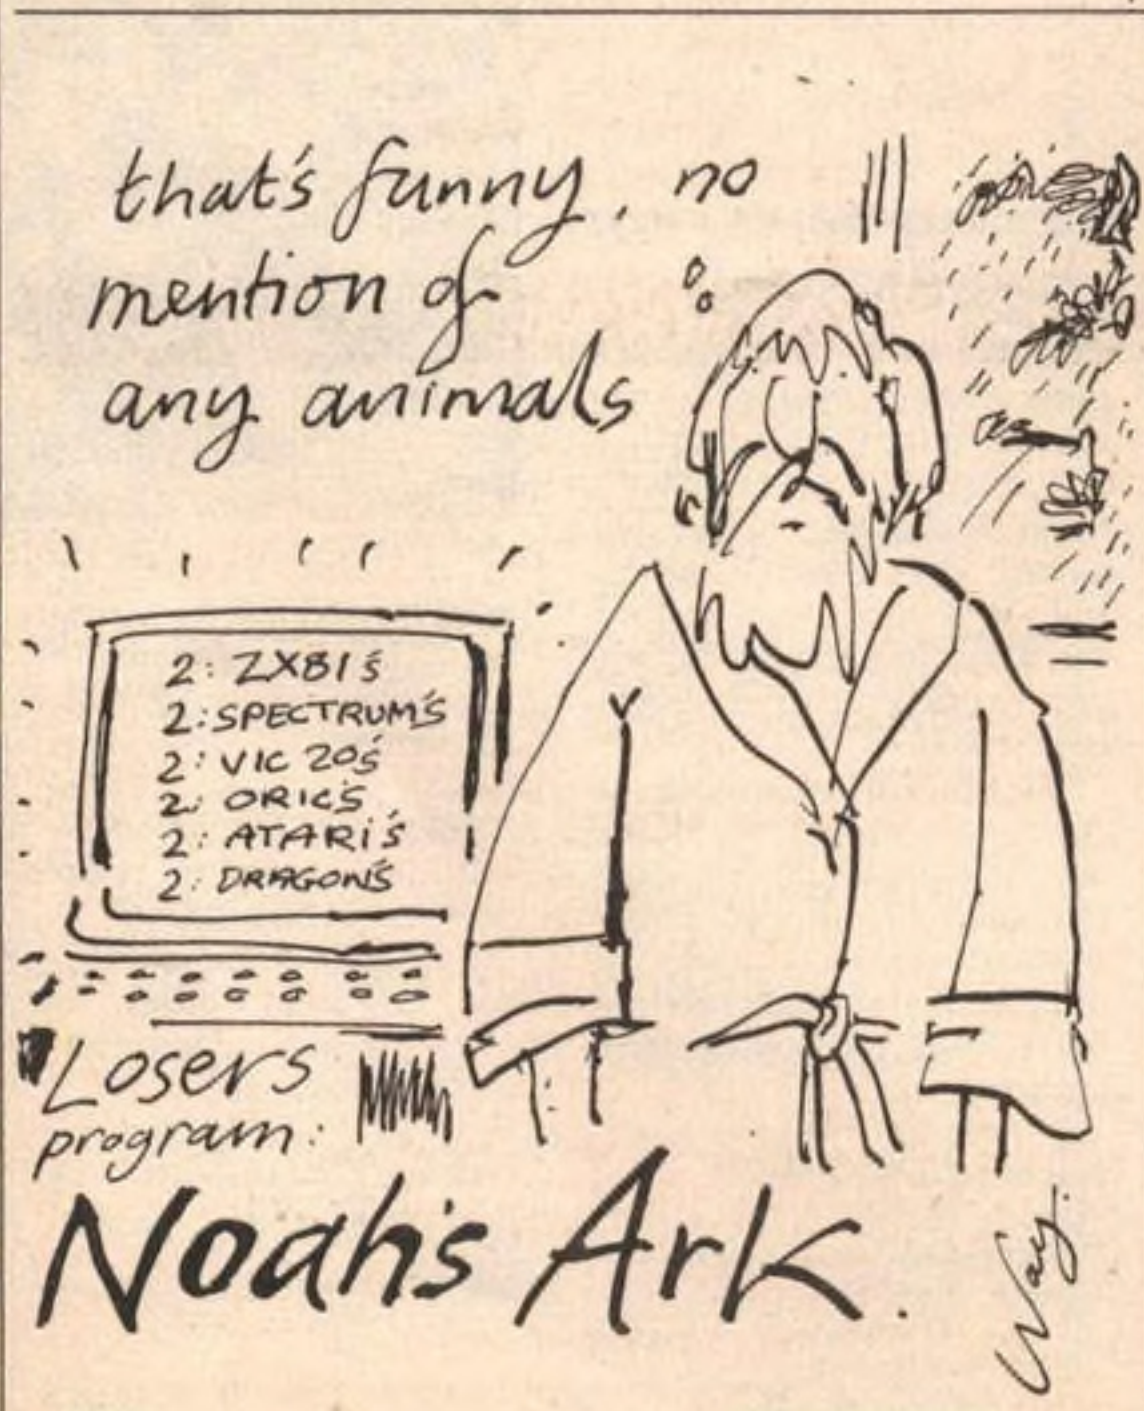 that's funny, no
mention of
any animals
2: ZX81's
2: SPECTRUM'S
2: VIC 20's
2: ORIC'S
2: ATARi's
2: DRAGON'S
Losers
program:
Noah's Ark.
Way.